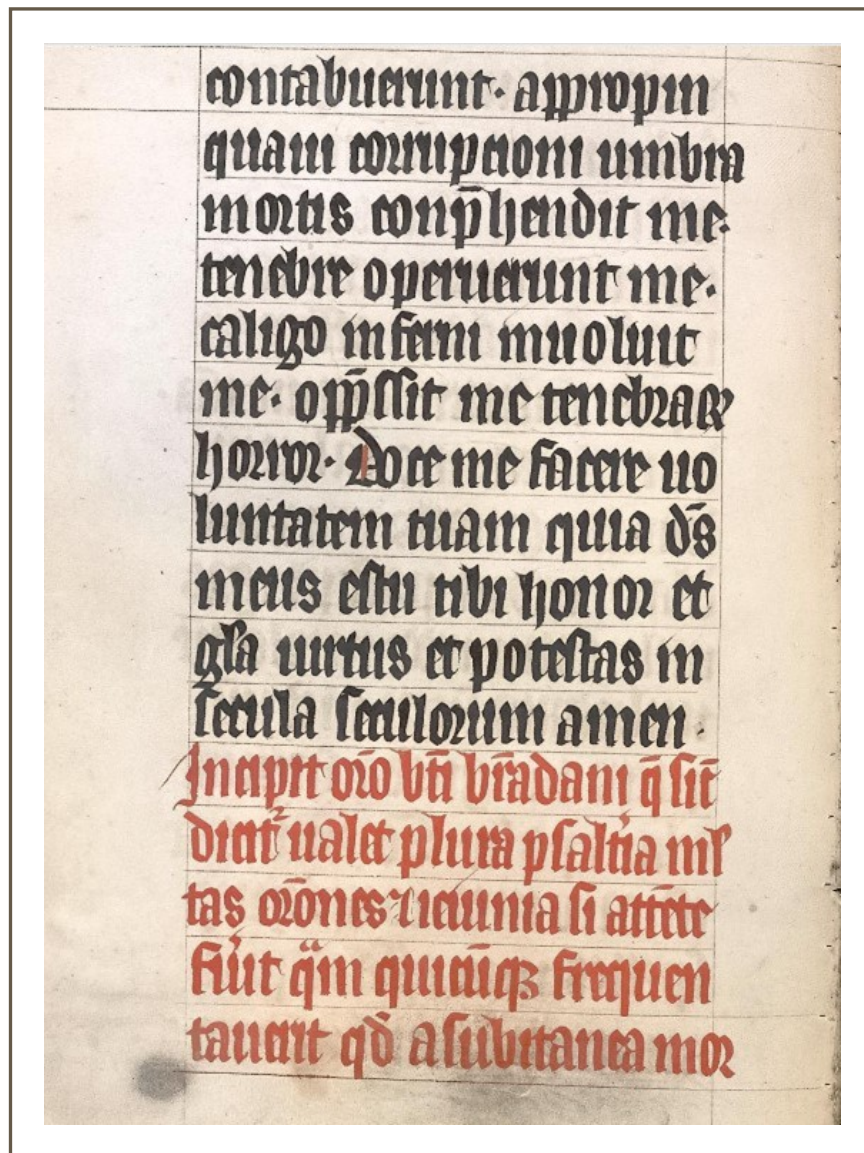 contabuerunt· appropin
quaui corrupcioni umbra
mortis conp̄hendit me·
tenebre operuerunt me·
caligo inferni inuoluit
me· opp̄ssit me tenebraꝝ
horror· Doce me facere uo
luntatem tuam quia d̄s
meus es tu tibi honor et
gl̄a uirtus et potestas in
secula seculorum amen·
Incipit or̄o bt̄i br̄adani q̄ sic̄
dicit᷑ ualet plura psaltia ml᷑
tas or̄ones ⁊ ieiunia si attēte
fiūt qm quicūqꝫ frequen
tauerit qd̄ a subitanea mor